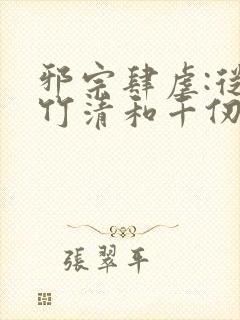 邪宗肆虐:從
竹清和千仞
張翠平